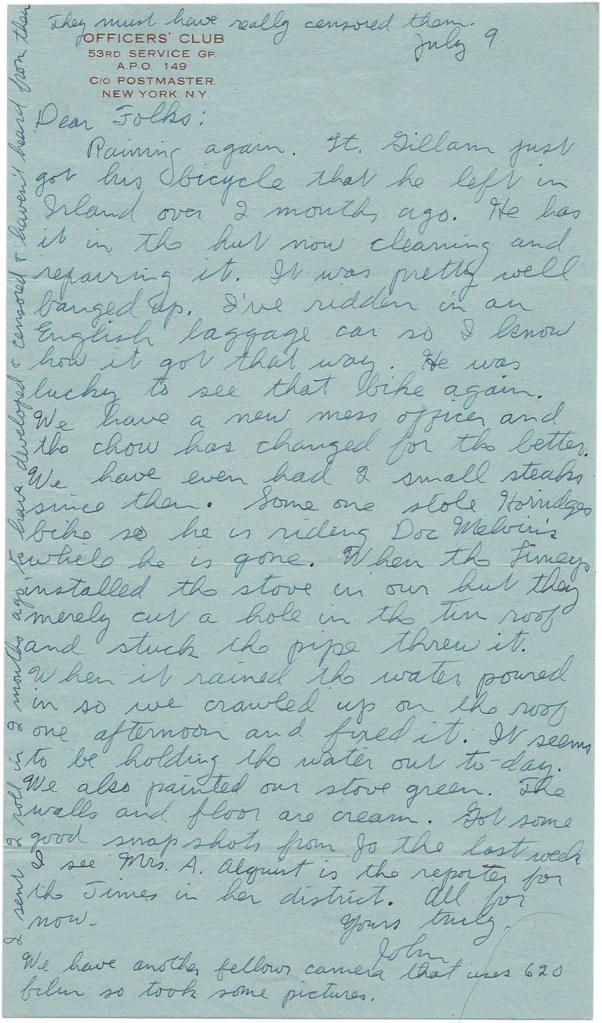 They must have really censored them.
OFFICERS' CLUB
53RD SERVICE GP.
A.P.O. 149
C/O POSTMASTER.
NEW YORK N.Y.
July 9
Dear Folks:
Raining again. Lt. Gillam just
got his bicycle that he left in
Irland over 2 months ago. He has
it in the hut now cleaning and
repairring it. It was pretty well
banged up. I've ridden in an
English laggage car so I know
how it got that way. He was
lucky to see that bike again.
We have a new mess officer and
the chow has changed for the better.
We have even had 2 small steaks
since then. Some one stole Horridges
bike so he is riding Doc Melvin's
while he is gone. When the Limeys
installed the stove in our hut they
merely cut a hole in the tin roof
and stuck the pipe threw it.
When it rained the water poured
in so we crawled up on the roof
one afternoon and fixed it. It seems
to be holding the water out to-day.
We also painted our stove green. The
walls and floor are cream. Got some
good snapshots from Jo the last week
I see Mrs. A. Alquist is the reporter for
the Times in her district. All for
now.
Yours truly.
John
We have another fellows camera that uses 620
film so took some pictures.
I sent 2 roll in 2 months ago to have developed & censored & haven't heard from them